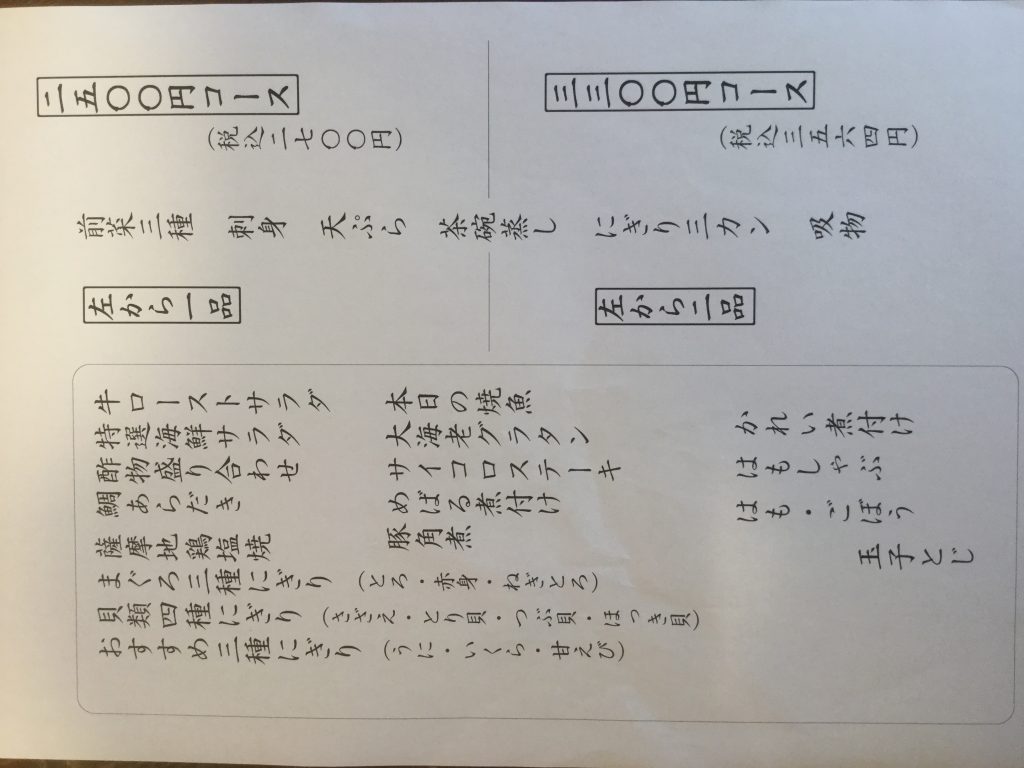 二五〇〇円コース
(税込二七〇〇円)
三三〇〇円コース
(税込三五六四円)
前菜三種　刺身　天ぷら　茶碗蒸し　にぎり三カン　吸物
左から一品
左から二品
牛ローストサラダ
特選海鮮サラダ
酢物盛り合わせ
鯛あらだき
薩摩地鶏塩焼
本日の焼魚
大海老グラタン
サイコロステーキ
めばる煮付け
豚角煮
かれい煮付け
はもしゃぶ
はも・ごぼう
玉子とじ
まぐろ三種にぎり (とろ・赤身・ねぎとろ)
貝類四種にぎり (さざえ・とり貝・つぶ貝・ほっき貝)
おすすめ三種にぎり (うに・いくら・甘えび)